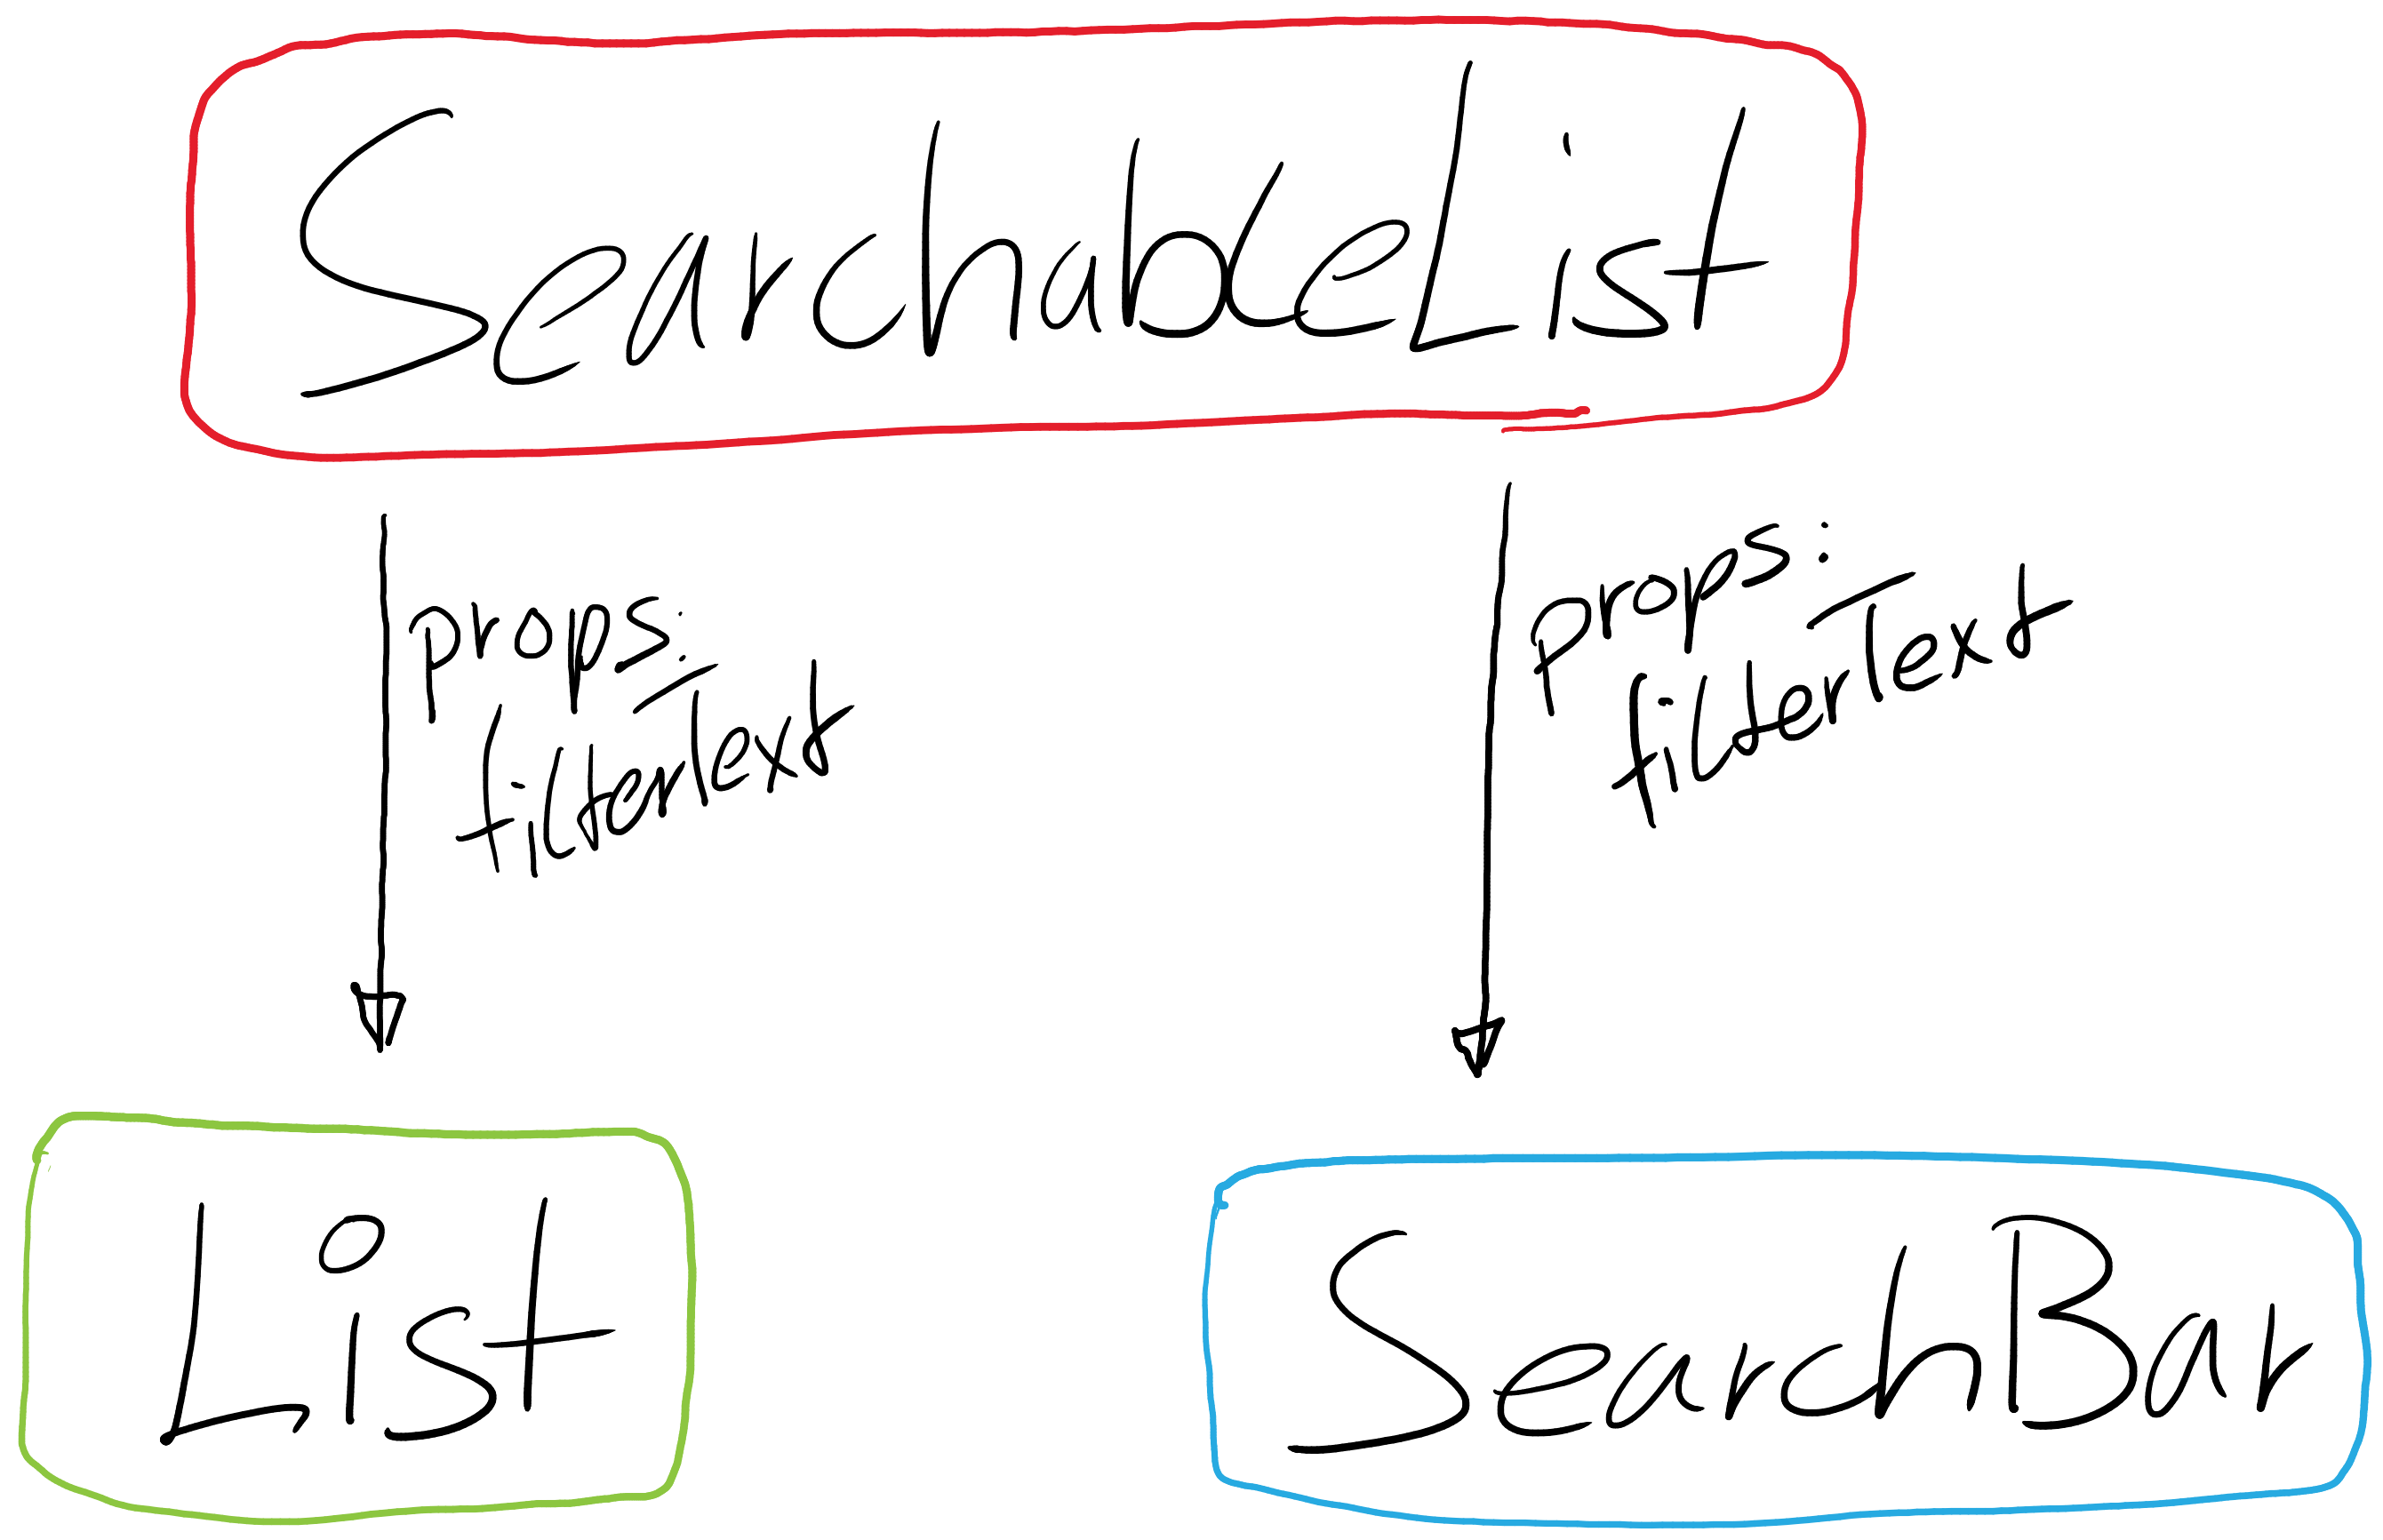 SearchableList
props:
filterText
props:
filterText
List
SearchBar